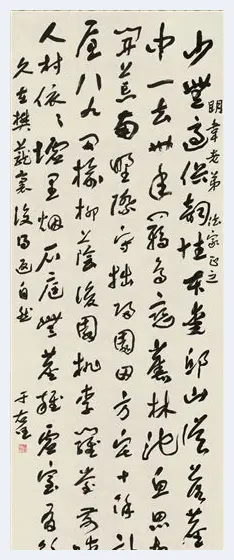 少無適俗韻性本愛邱山誤落塵
明韋老弟 法家正之
中一去卅年羈鳥戀舊林池魚思
開荒南野際守拙歸園田方宅十餘
屋八九間榆柳蔭後園桃李羅堂前
人村依〻墟里烟戶庭無塵雜虛室有
久在樊籠裏復得返自然
于右任